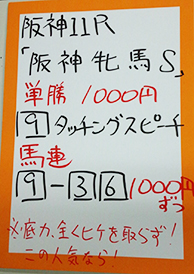 阪神11R
「阪神牝馬S」
単勝 1000円
9 タッチングスピーチ
馬連
9-36 1000円
ずつ
※底力、全くヒケを取らず!
この人気なら!